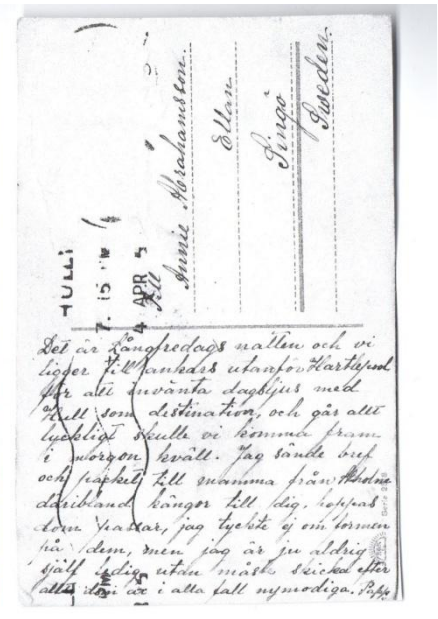 HULL
7.15 PM
4 APR
Till
Annie Abrahamsson.
Ellan
Singö
Sweden.
Det är Långfredags natten och vi
ligger till ankars utanför Hartlepool
för att invänta dagsljus med
Hull som destination, och går allt
lyckligt skulle vi komma fram
i morgon kväll. Jag sände bref
och packet till mamma från Stholm
däribland kängor till dig, hoppas
dom passar, jag tyckte ej om formen
på dem, men jag är ju aldrig
själf ledig utan måste skicka efter
allt, den är i alla fall nymodiga. Papp